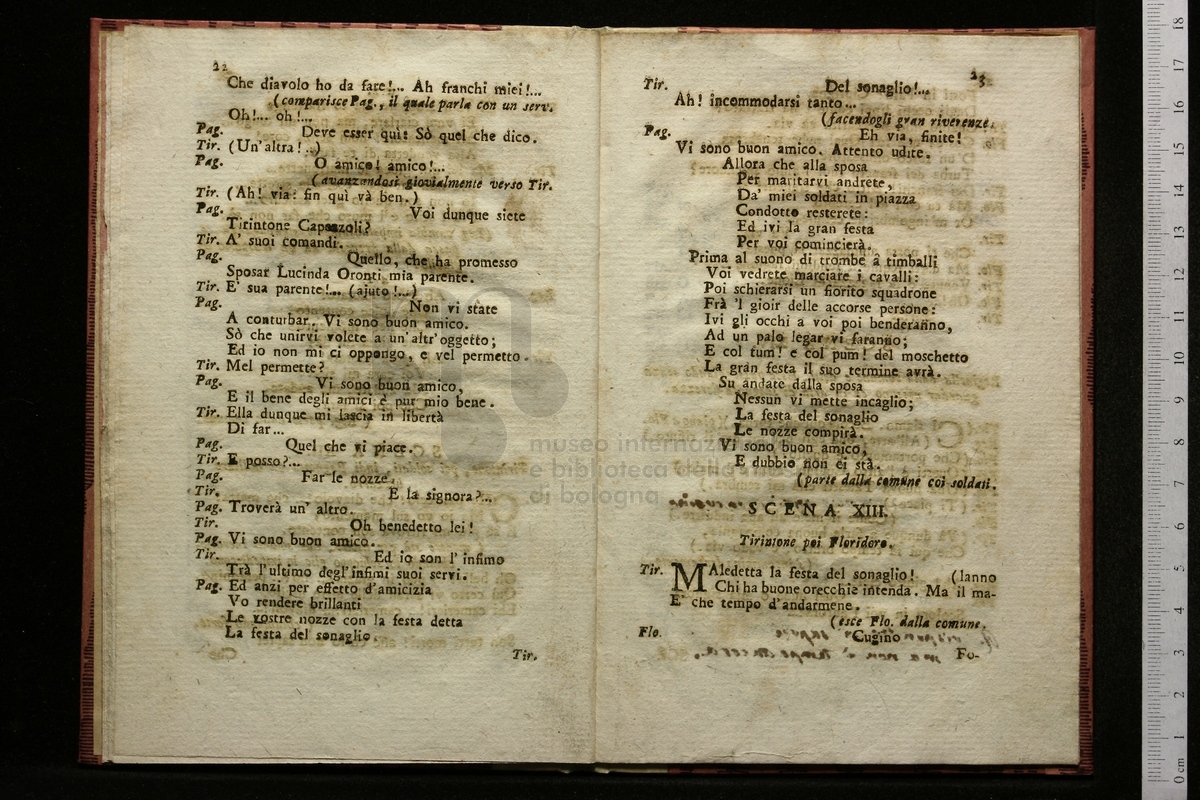 22
Che diavolo ho da fare!... Ah franchi miei!...
(comparisce Pag., il quale parla con un serv.
Oh!... oh!...
Pag. Deve esser quì: Sò quel che dico.
Tir. (Un'altra!..)
Pag. O amico! amico!...
(avanzandosi giovialmente verso Tir.
Tir. (Ah! via: fin quì và ben.)
Pag. Voi dunque siete
Tirintone Capezzoli?
Tir. A' suoi comandi.
Pag. Quello, che ha promesso
Sposar Lucinda Oronti mia parente.
Tir. E' sua parente!... (ajuto!..)
Pag. Non vi state
A conturbar. Vi sono buon amico.
Sò che unirvi volete a un'altr'oggetto;
Ed io non mi ci oppongo, e vel permetto.
Tir. Mel permette?
Pag. Vi sono buon amico,
E il bene degli amici è pur mio bene.
Tir. Ella dunque mi lascia in libertà
Di far...
Pag. Quel che vi piace.
Tir. E posso?...
Pag. Far le nozze.
Tir. E la signora?...
Pag. Troverà un' altro.
Tir. Oh benedetto lei!
Pag. Vi sono buon amico.
Tir. Ed io son l' infimo
Trà l'ultimo degl'infimi suoi servi.
Pag. Ed anzi per effetto d'amicizia
Vo rendere brillanti
Le vostre nozze con la festa detta
La festa del sonaglio.
Tir.
23
Tir. Del sonaglio!...
Ah! incommodarsi tanto...
(facendogli gran riverenze.
Pag. Eh via, finite!
Vi sono buon amico. Attento udite.
Allora che alla sposa
Per maritarvi andrete,
Da' miei soldati in piazza
Condotto resterete:
Ed ivi la gran festa
Per voi comincierà.
Prima al suono di trombe a timballi
Voi vedrete marciare i cavalli:
Poi schierarsi un fiorito squadrone
Frà 'l gioir delle accorse persone:
Ivi gli occhi a voi poi benderanno,
Ad un palo legar vi faranno;
E col tum! e col pum! del moschetto
La gran festa il suo termine avrà.
Su andate dalla sposa
Nessun vi mette incaglio;
La festa del sonaglio
Le nozze compirà.
Vi sono buon amico,
E dubbio non ci stà.
(parte dalla comune coi soldati.
SCENA XIII.
Tirintone poi Floridoro.
Tir. MAledetta la festa del sonaglio! (lanno
Chi ha buone orecchie intenda. Ma il ma-
E' che tempo d'andarmene.
(esce Flo. dalla comune.
Flo. Cugino
Fo-
museo internaz
e biblioteca della mu
di bologna
0 cm 1 2 3 4 5 6 7 8 9 10 11 12 13 14 15 16 17 18